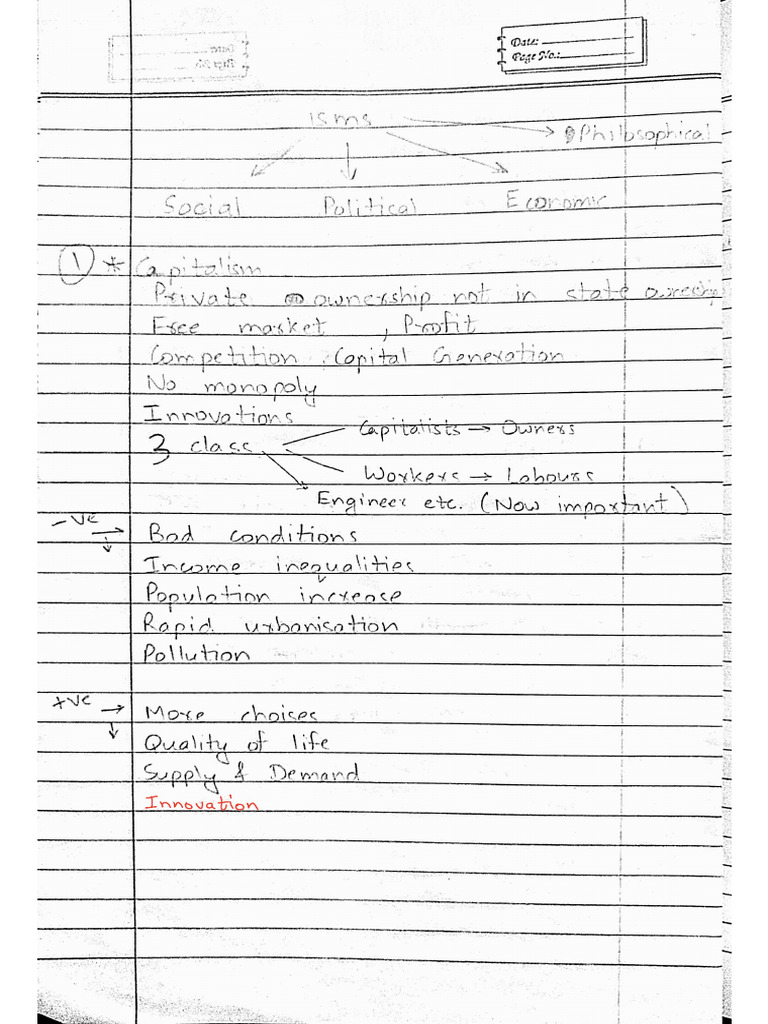 Date:
Page No.:
isms
Philosophical
Social Political Economic
① * Capitalism
Private ownership not in state
Free market , Profit
Competition , Capital Generation
No monopoly
Innovations
3 class
Capitalists → Owners
Workers → Labours
Engineer etc. (Now important)
-ve → Bad conditions
Income inequalities
Population increase
Rapid urbanisation
Pollution
+ve → More choices
Quality of life
Supply & Demand
Innovation